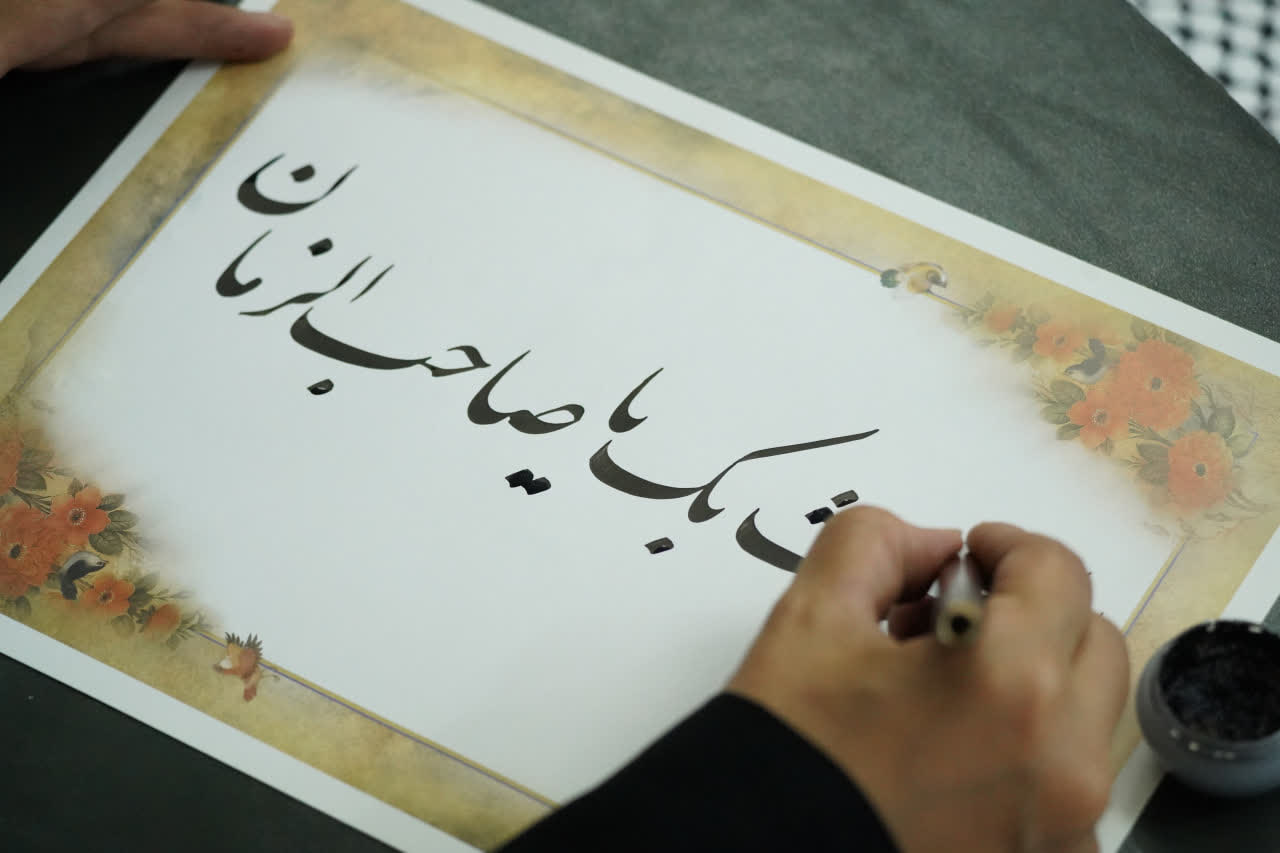 بک یا صاحب الزمان